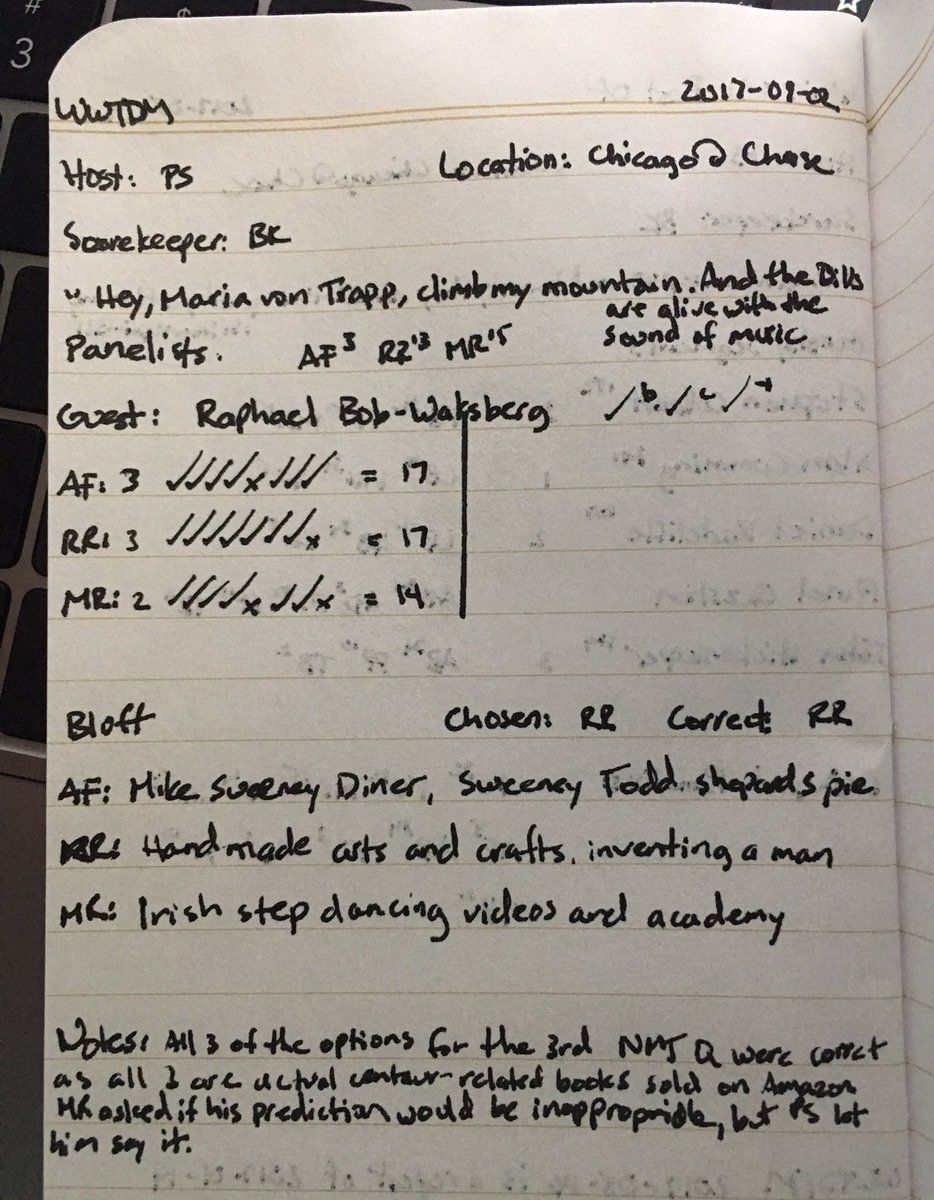 # 3 $
WWTDM 2017-09-02
Host: PS Location: Chicago @ Chase
Scorekeeper: BK
" Hey, Maria von Trapp, climb my mountain. And the Bills
are alive with the
sound of music
Panelists. AF³ RR'13 MR'15
Guest: Raphael Bob-Waksberg ✓b ✓c ✓
AF: 3 ✓✓✓✓x✓✓✓ = 17
RR: 3 ✓✓✓✓✓✓✓x = 17
MR: 2 ✓✓✓✓x✓✓x = 14
Bluff Chosen: RR Correct: RR
AF: Mike Sweeney Diner, Sweeney Todd shepards pie
RR: Handmade arts and crafts. inventing a man
MR: Irish step dancing videos and academy
Notes: All 3 of the options for the 3rd NMJ Q were correct
as all 3 are actual centaur-related books sold on Amazon
MR asked if his prediction would be inappropriate, but PS let
him say it.